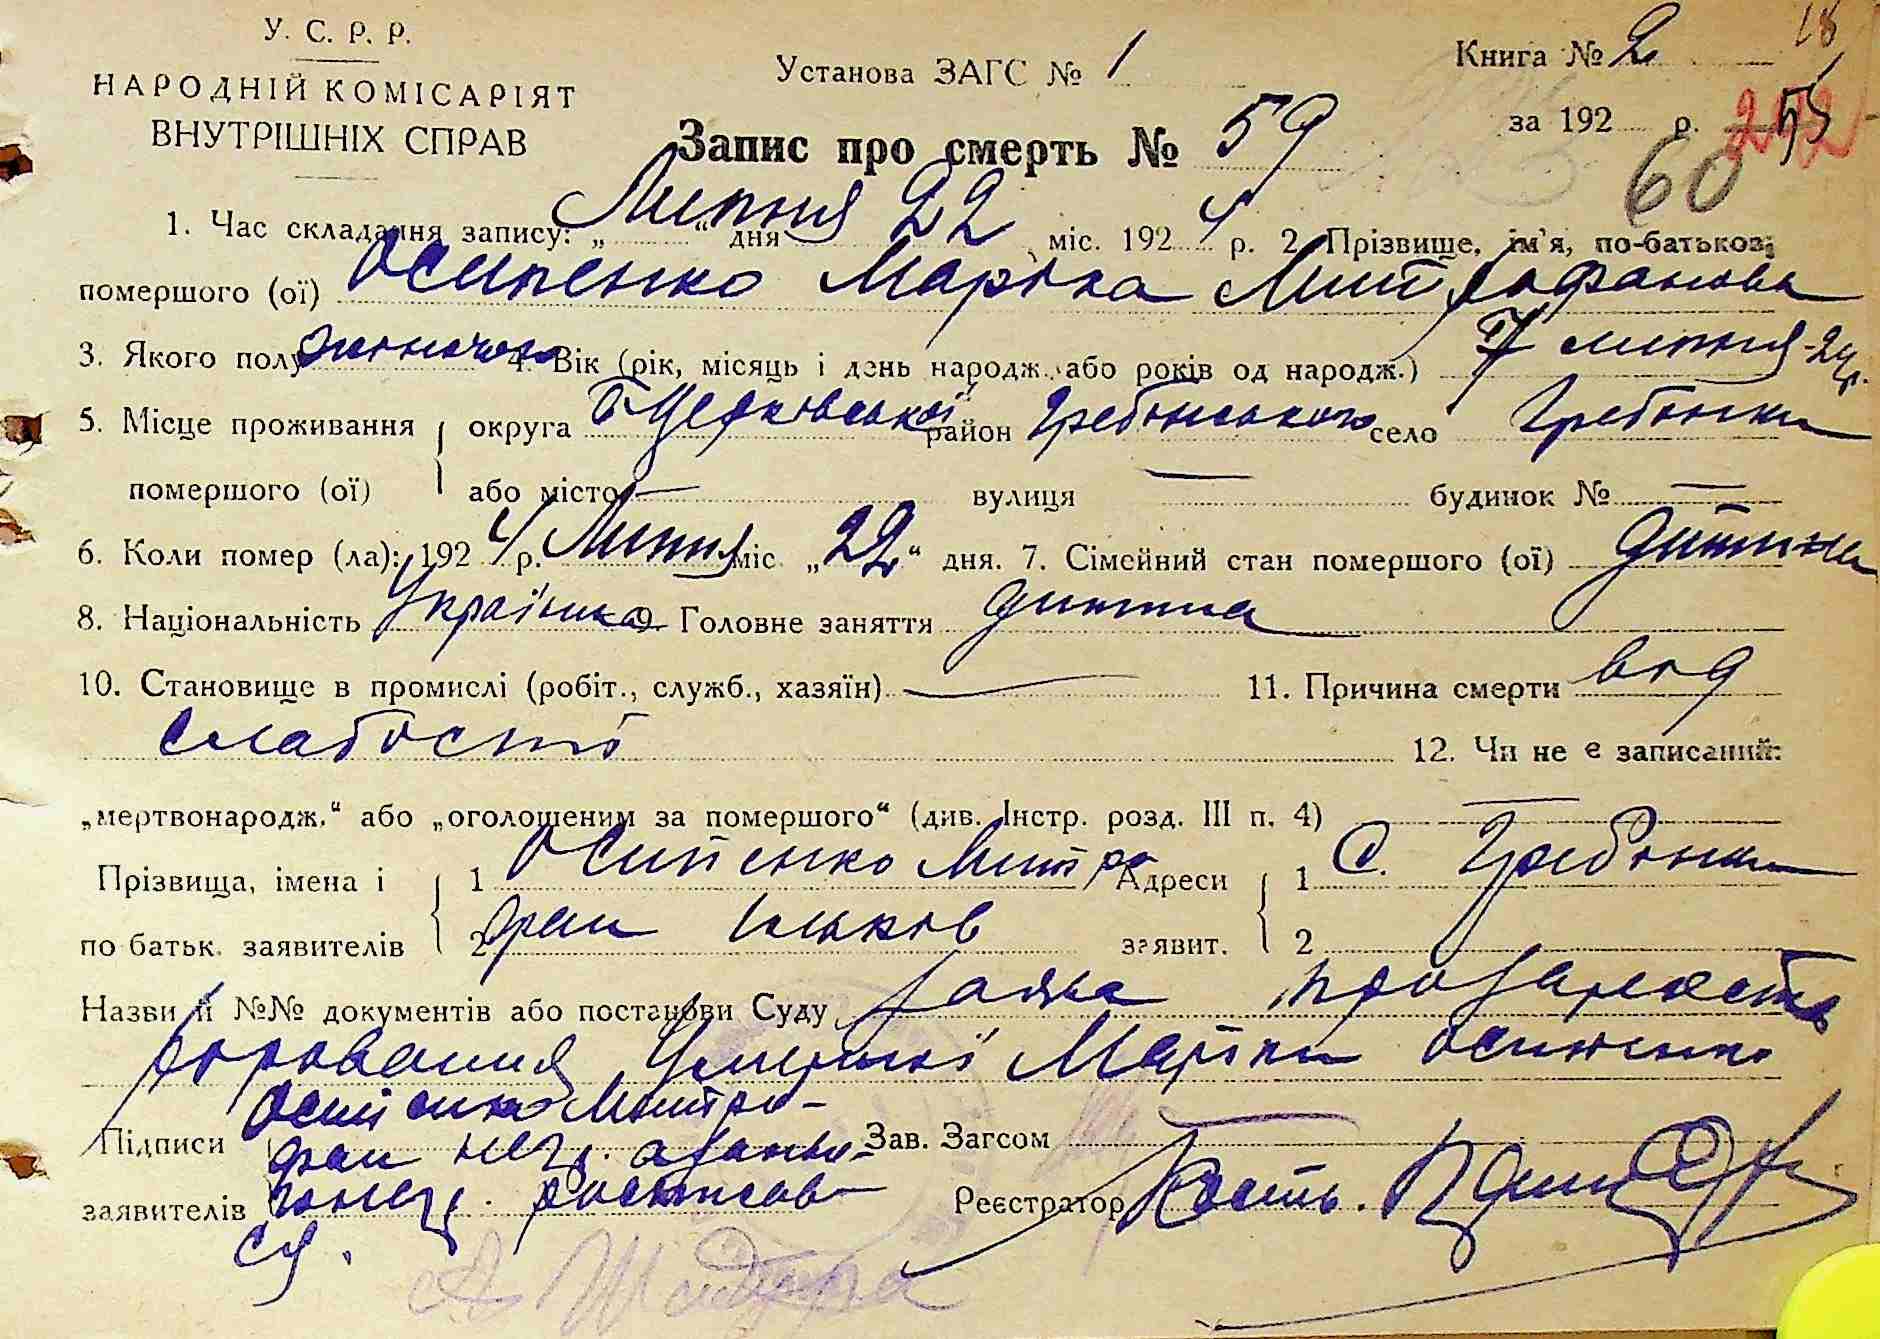 У. С. Р. Р.
НАРОДНІЙ КОМІСАРІЯТ
ВНУТРІШНІХ СПРАВ
Установа ЗАГС № 1
Книга № 2
18
за 192 р. 292 55
60
Запис про смерть № 59
1. Час складання запису: „ “ дня Липня 22 міс. 1924 р. 2. Прізвище, ім'я, по-батькові
помершого (ої) Осипенко Марійка Митрофанова
3. Якого полу жіночого 4. Вік (рік, місяць і день народж. або років од народж.) 7 липня-24р.
5. Місце проживання округа Б Церківської район Гребінського село Гребінки
помершого (ої) або місто — вулиця — будинок № —
6. Коли помер (ла): 1924 р. Липня міс. „22“ дня. 7. Сімейний стан помершого (ої) дитина
8. Національність Українка 9. Головне заняття дитина
10. Становище в промислі (робіт., служб., хазяїн) — 11. Причина смерти від
слабости 12. Чи не є записаний:
„мертвонародж.“ або „оголошеним за помершого“ (див. Інстр. розд. III п. 4) —
Прізвища, імена і 1 Осипенко Митро Адреси 1 С. Гребінки
по батьк. заявителів 2 фан заявит. 2
Назви й №№ документів або постанови Суду
Умершої Марійки Осипенко
Підписи Осипенко Митро- Зав. Загсом
фан
заявителів росписав Реєстратор
ся.